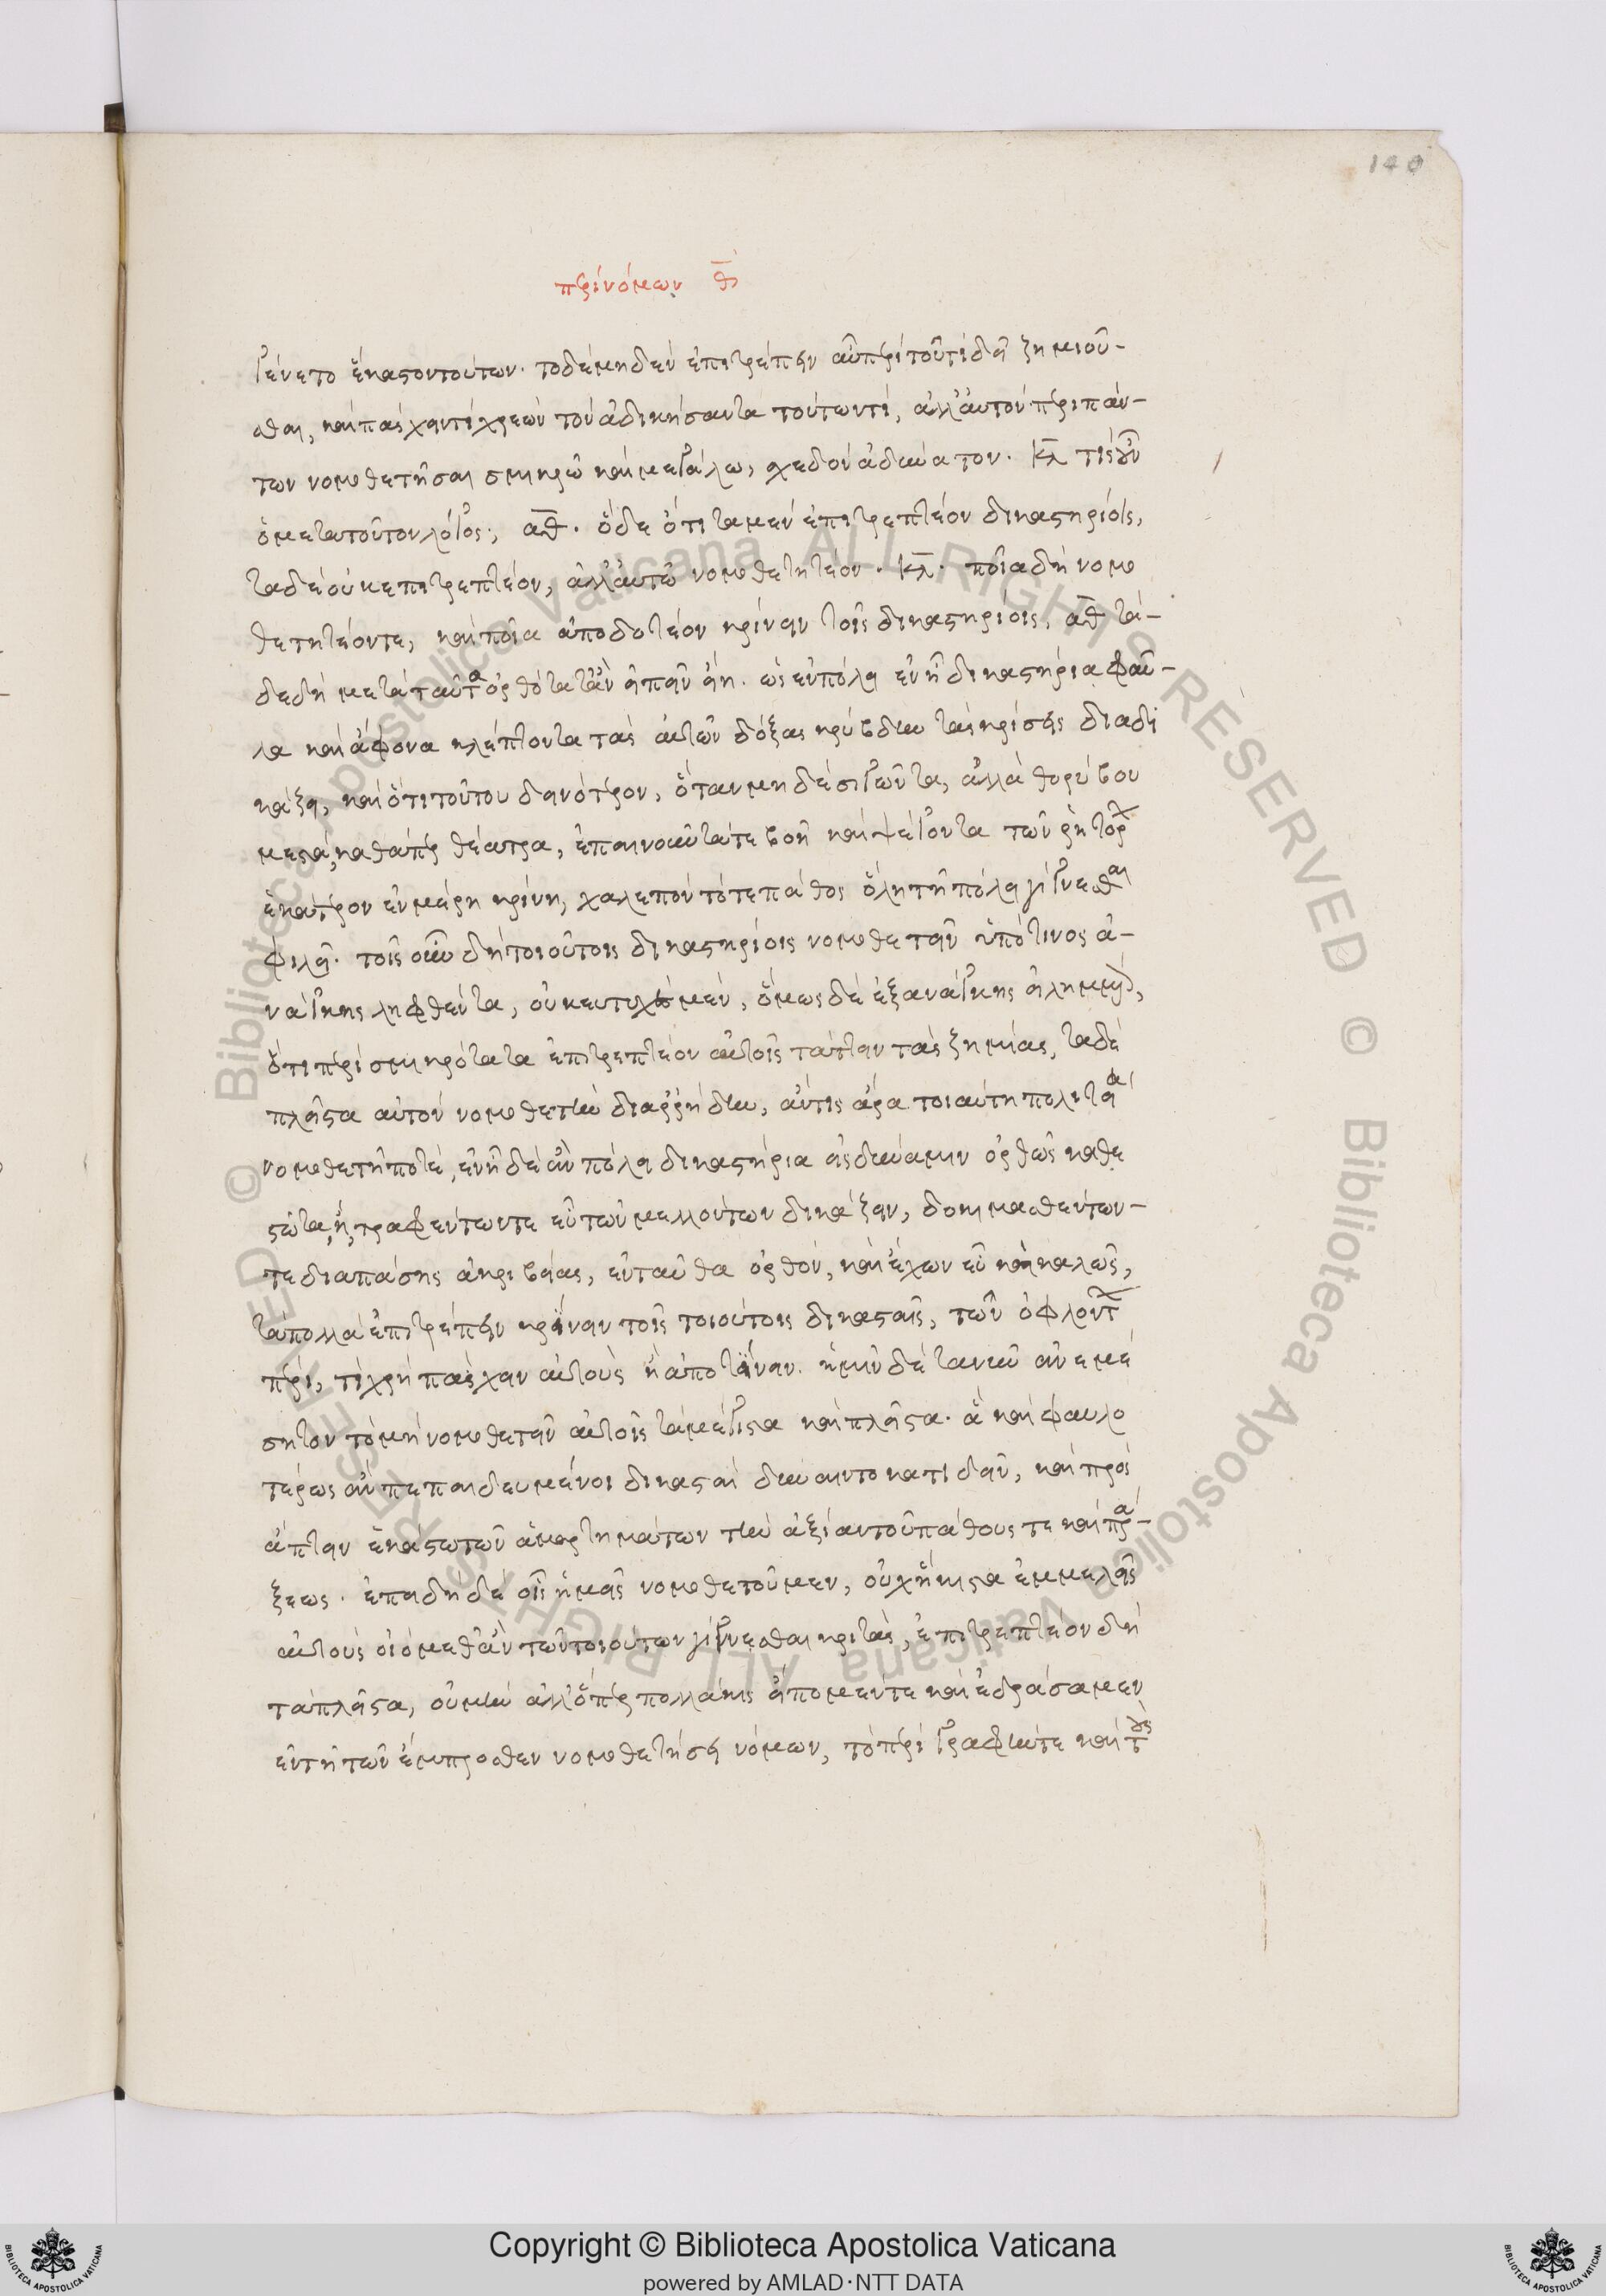 140
περὶ νόμων θ
γένετο ἕκαστον τούτων· τὸ δὲ μηδὲν ἐπιτρέπειν αὖ περὶ τοῦ τί δεῖ ζημιοῦ-
σθαι, καὶ πάσχειν τί χρεὼν τὸν ἀδικήσαντα τούτων τί, ἀλλ' αὐτὸν περὶ πάν-
των νομοθετῆσαι σμικρῶ καὶ μεγάλω, σχεδὸν ἀδύνατον. ΚΛ τίς οὖν
ὁ μετὰ τοῦτον λόγος; ΑΘ. ὅδε ὅτι τὰ μὲν ἐπιτρεπτέον δικαστηρίοις,
τὰ δὲ οὐκ ἐπιτρεπτέον, ἀλλ' αὐτῶ νομοθετητέον. ΚΛ. ποῖα δὴ νομο
θετητέον τε, καὶ ποῖα ἀποδοτέον κρίνειν τοῖς δικαστηρίοις; ΑΘ τά-
δε δὴ μετὰ ταῦτα ὀρθότατ' ἂν εἰπεῖν εἴη. ὡς ἐν πόλει ἐν ἧ δικαστήρια φαῦ-
λα καὶ ἄφωνα κλέπτοντα τὰς αὑτῶν δόξας κρύβδην τὰς κρίσεις διαδι
κάζει, καὶ ὅτι τούτου δεινότερον, ὅταν μηδὲ σιγῶντα, ἀλλὰ θορύβου
μεστά, καθάπερ θέατρα, ἐπαινοῦντά τε βοῆ καὶ ψέγοντα τῶν ῥητόρων
ἑκάτερον ἐν μέρη κρίνη, χαλεπὸν τότε πάθος ὅλη τῆ πόλει γίγνεσθαι
φιλεῖ. τοῖς οὖν δὴ τοιούτοις δικαστηρίοις νομοθετεῖν ὑπό τινος ἀ-
νάγκης ληφθέντα, οὐκ εὐτυχὲς μέν, ὅμως δὲ ἐξ ἀνάγκης εἰλημμένον,
ὅτι περὶ σμικρότατα ἐπιτρεπτέον αὐτοῖς τάττειν τὰς ζημίας, τὰ δὲ
πλεῖστα αὐτὸν νομοθετεῖν διαρρήδην, ἄν τις ἄρα τοιαύτη πολιτεία
νομοθετῆ ποτέ, ἐν ἧ δὲ ἂν πόλει δικαστήρια εἰς δύναμιν ὀρθῶς καθε
στῶτα ἦ, τραφέντων τε εὖ τῶν μελλόντων δικάζειν, δοκιμασθέντων-
τε διὰ πάσης ἀκριβείας, ἐνταῦθα ὀρθόν, καὶ ἔχων εὖ καὶ καλῶς,
τὰ πολλὰ ἐπιτρέπειν κρίνειν τοῖς τοιούτοις δικασταῖς, τῶν ὀφλόντων
πέρι, τί χρὴ πάσχειν αὐτοὺς ἢ ἀποτίνειν. ἡμῖν δὲ τὰ νῦν ἀνεμέ
σητον τὸ μὴ νομοθετεῖν αὐτοῖς τὰ μέγιστα καὶ πλεῖστα. ἃ καὶ φαυλο
τέρως ἂν πεπαιδευμένοι δικασταὶ δύναιντο κατιδεῖν, καὶ προσ
άπτειν ἑκάστω τῶν ἁμαρτημάτων τὴν ἀξίαν τοῦ πάθους τε καὶ πρά-
ξεως. ἐπειδὴ δὲ οἷς ἡμεῖς νομοθετοῦμεν, οὐχ ἥκιστα ἐμμελεῖς
αὐτοὺς οἰόμεθ' ἂν τῶν τοιούτων γίγνεσθαι κριτάς, ἐπιτρεπτέον δὴ
τὰ πλεῖστα, οὐ μὴν ἀλλ' ὅπερ πολλάκις εἴπομέν τε καὶ ἐδράσαμεν
ἐν τῆ τῶν ἔμπροσθεν νομοθετήσει νόμων, τὸ περιγραφήν τε καὶ τοὺς
Copyright © Biblioteca Apostolica Vaticana
powered by AMLAD·NTT DATA